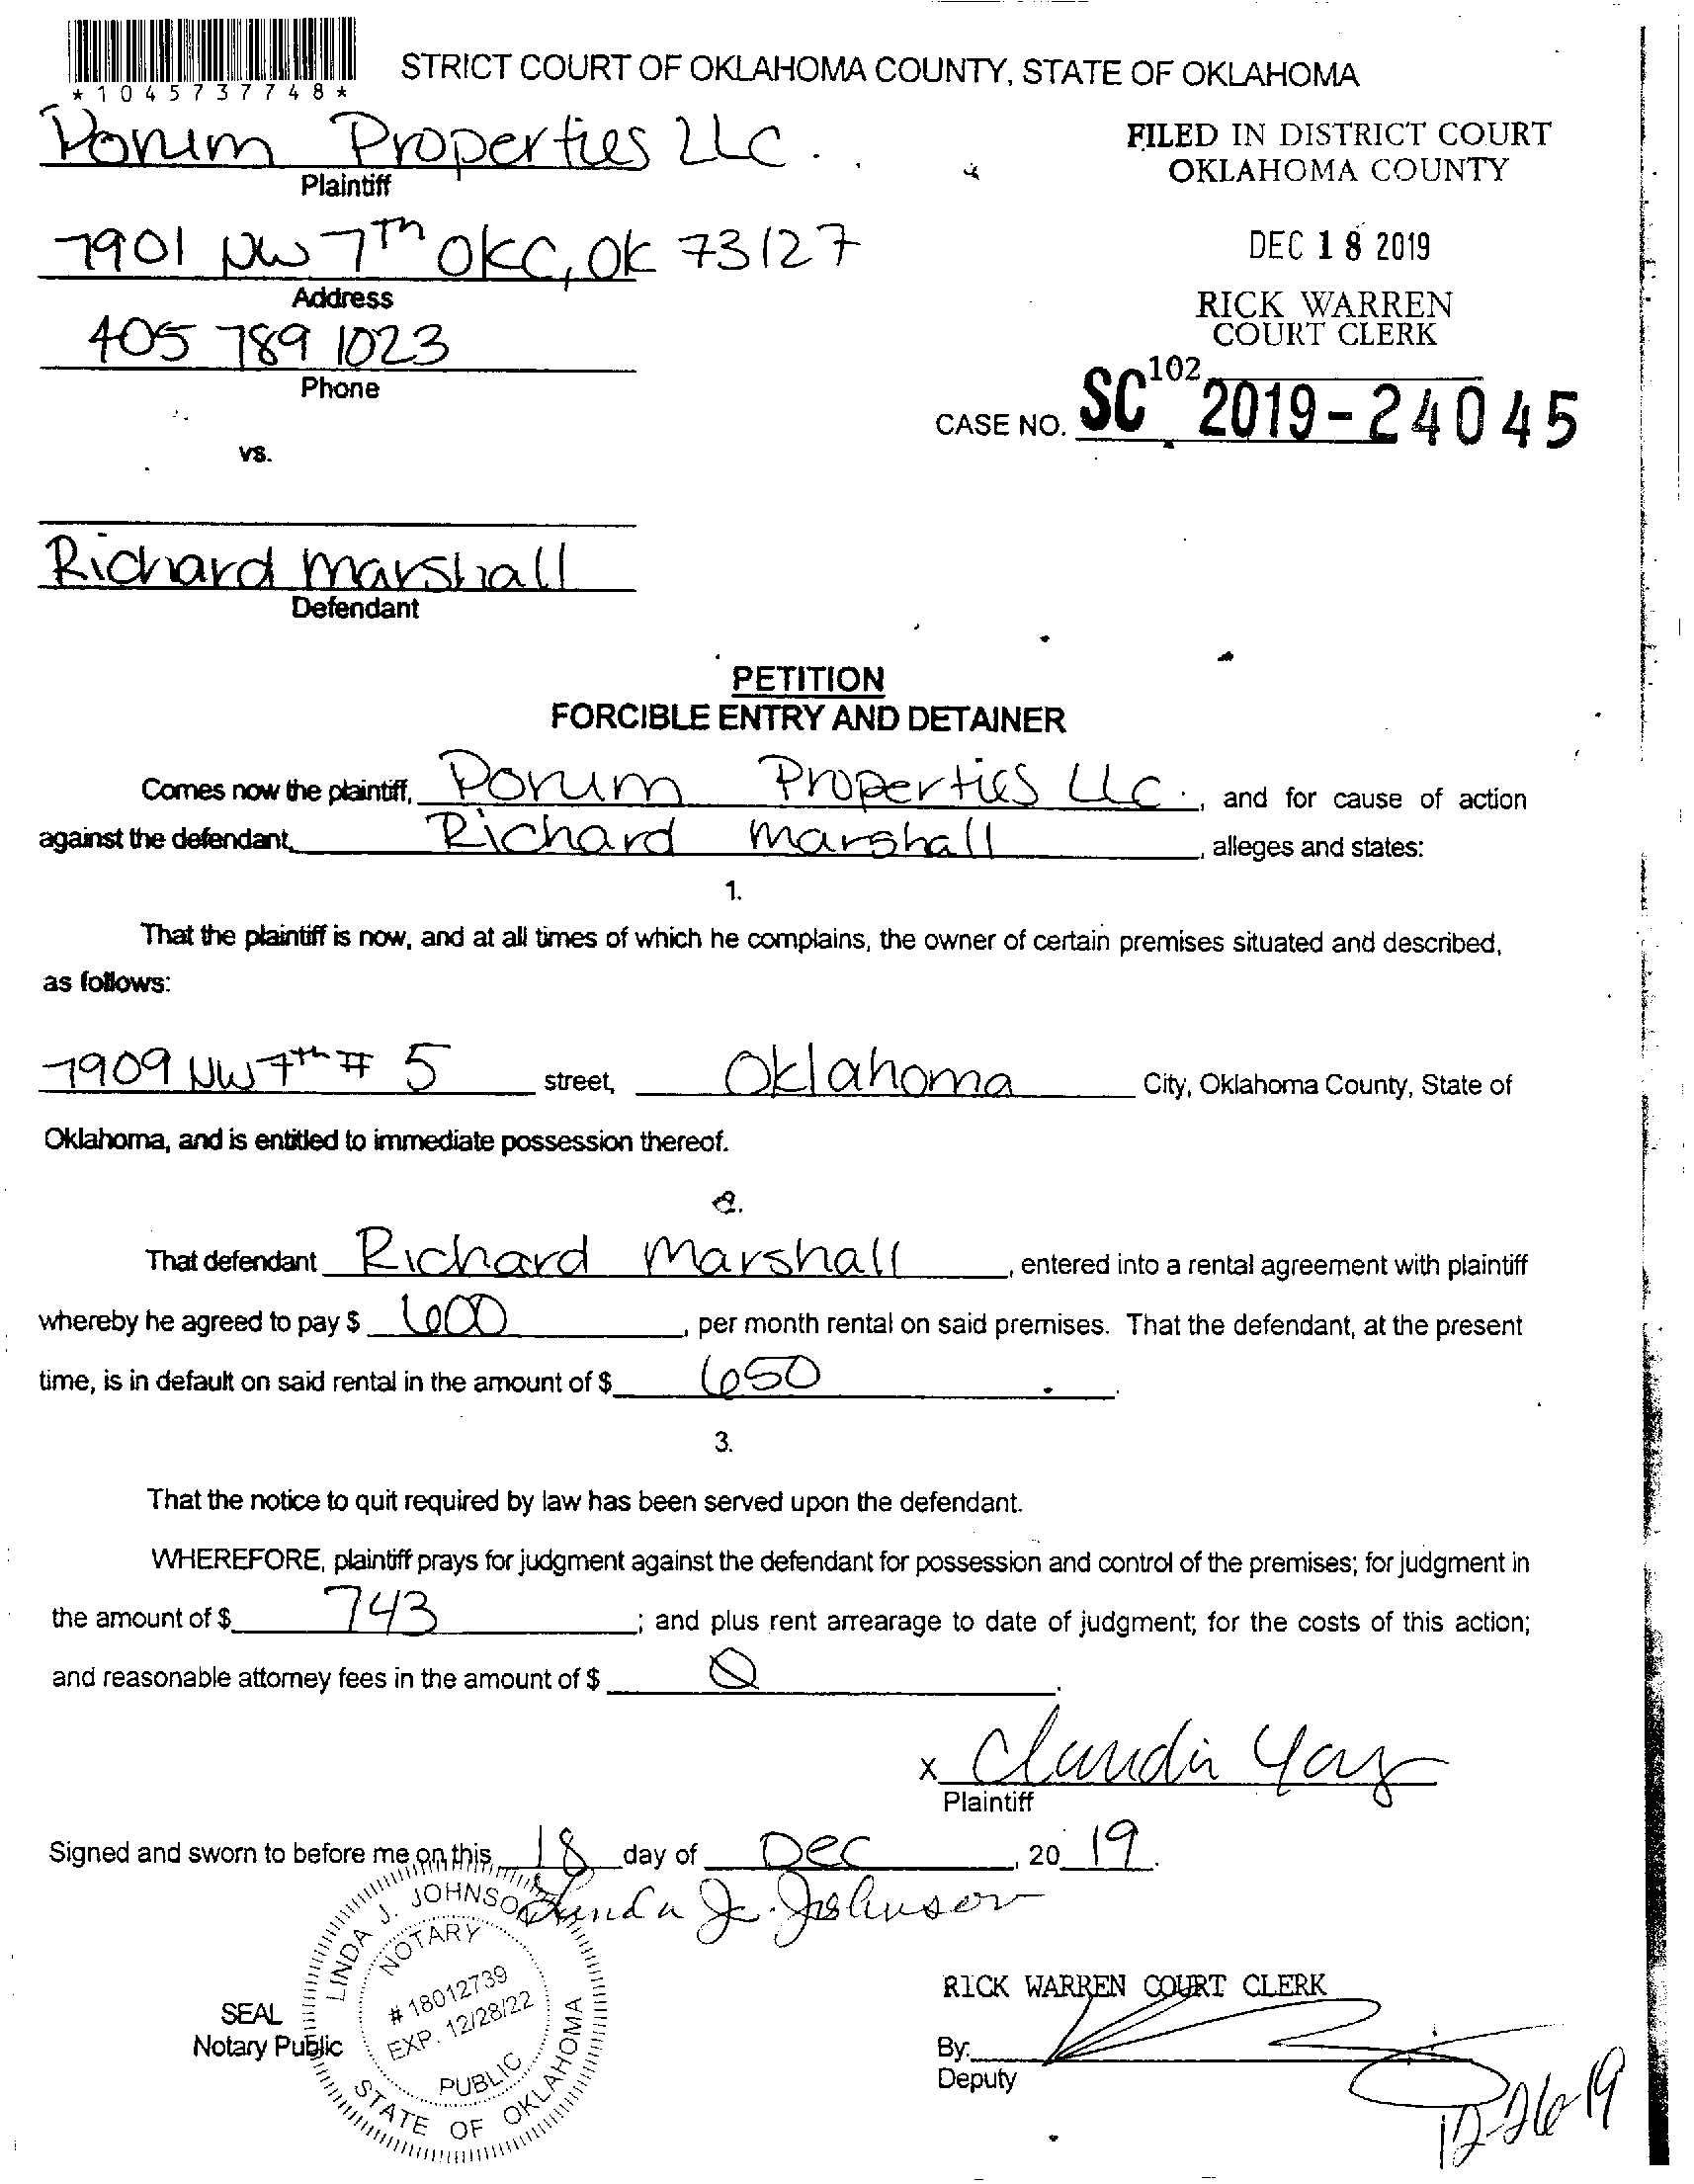 *1045737748*
STRICT COURT OF OKLAHOMA COUNTY, STATE OF OKLAHOMA
Porum Properties LLC.
Plaintiff
7901 NW 7th OKC, OK 73127
Address
405 789 1023
Phone
FILED IN DISTRICT COURT
OKLAHOMA COUNTY
DEC 18 2019
RICK WARREN
COURT CLERK
102
CASE NO. SC 2019-24045
vs.
Richard Marshall
Defendant
PETITION
FORCIBLE ENTRY AND DETAINER
Comes now the plaintiff, Porum Properties LLC., and for cause of action
against the defendant, Richard Marshall, alleges and states:
1.
That the plaintiff is now, and at all times of which he complains, the owner of certain premises situated and described,
as follows:
7909 NW 7th # 5 street, Oklahoma City, Oklahoma County, State of
Oklahoma, and is entitled to immediate possession thereof.
2.
That defendant Richard Marshall, entered into a rental agreement with plaintiff
whereby he agreed to pay $ 600, per month rental on said premises. That the defendant, at the present
time, is in default on said rental in the amount of $ 650.
3.
That the notice to quit required by law has been served upon the defendant.
WHEREFORE, plaintiff prays for judgment against the defendant for possession and control of the premises; for judgment in
the amount of $ 743; and plus rent arrearage to date of judgment; for the costs of this action;
and reasonable attorney fees in the amount of $ 0.
x Claudia
Plaintiff
Signed and sworn to before me on this 18 day of Dec, 20 19.
Linda J. Johnson
LINDA J. JOHNSON
NOTARY
# 18012739
EXP. 12/28/22
PUBLIC
STATE OF OKLAHOMA
SEAL
Notary Public
RICK WARREN COURT CLERK
By:
Deputy
12-26-19